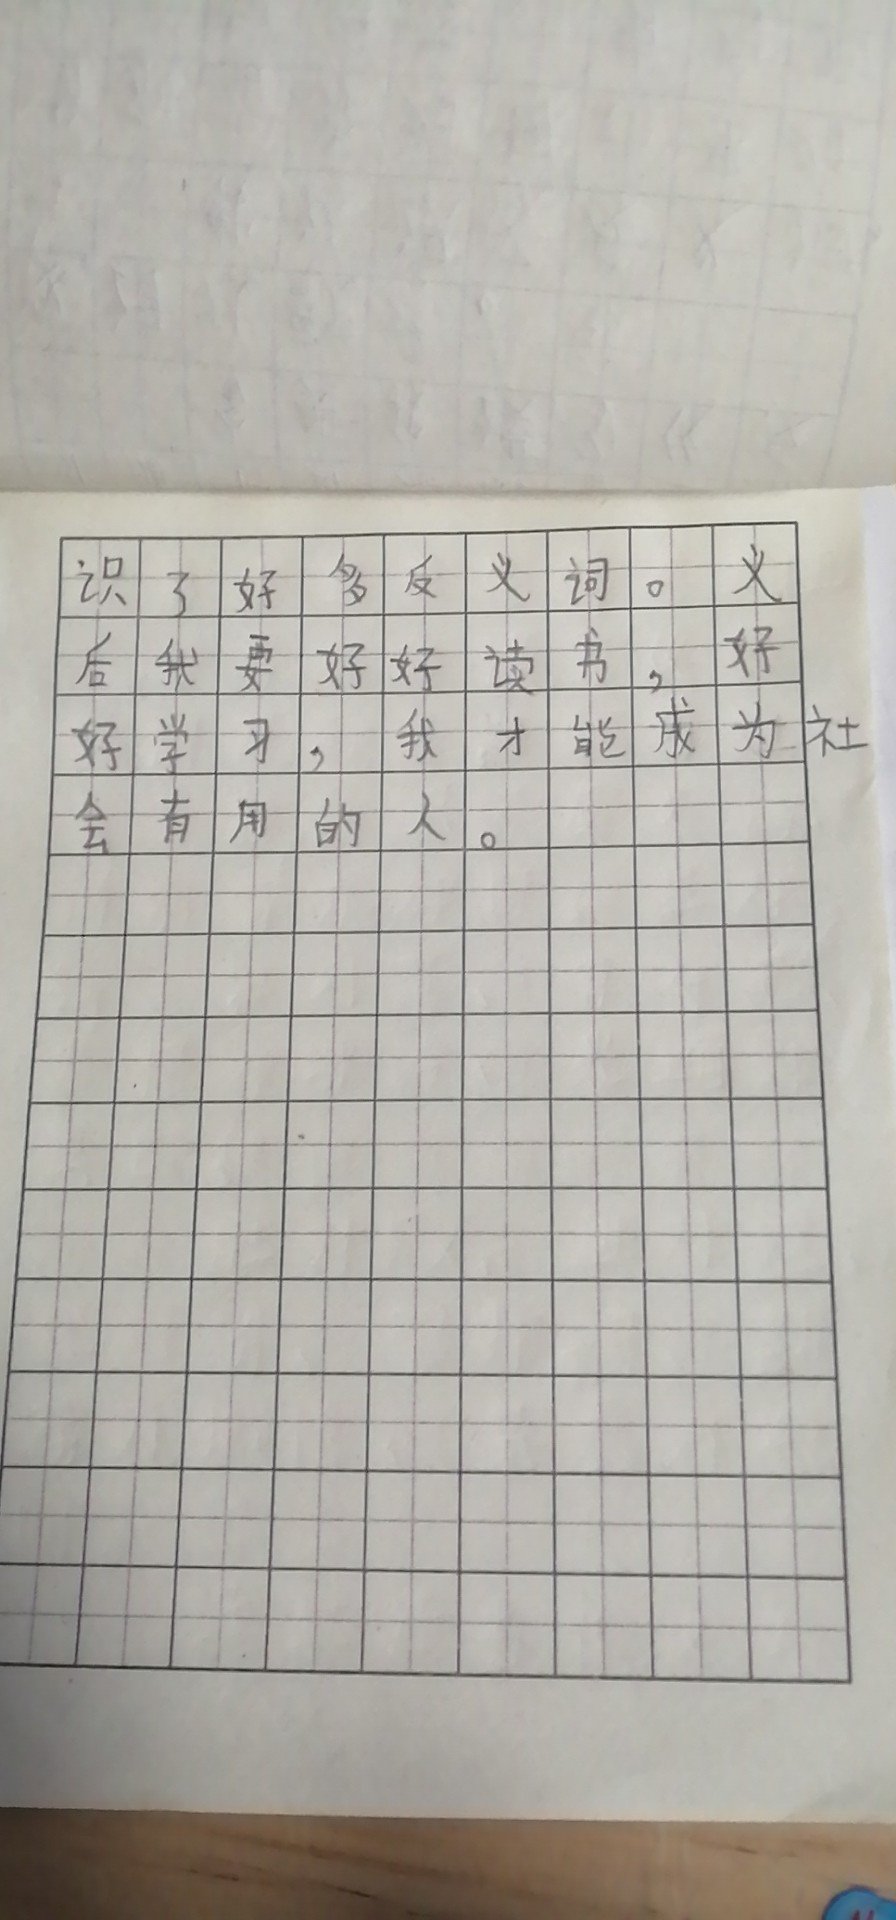 识了好多反义词。义
后我要好好读书，好
好学习，我才能成为社
会有用的人。